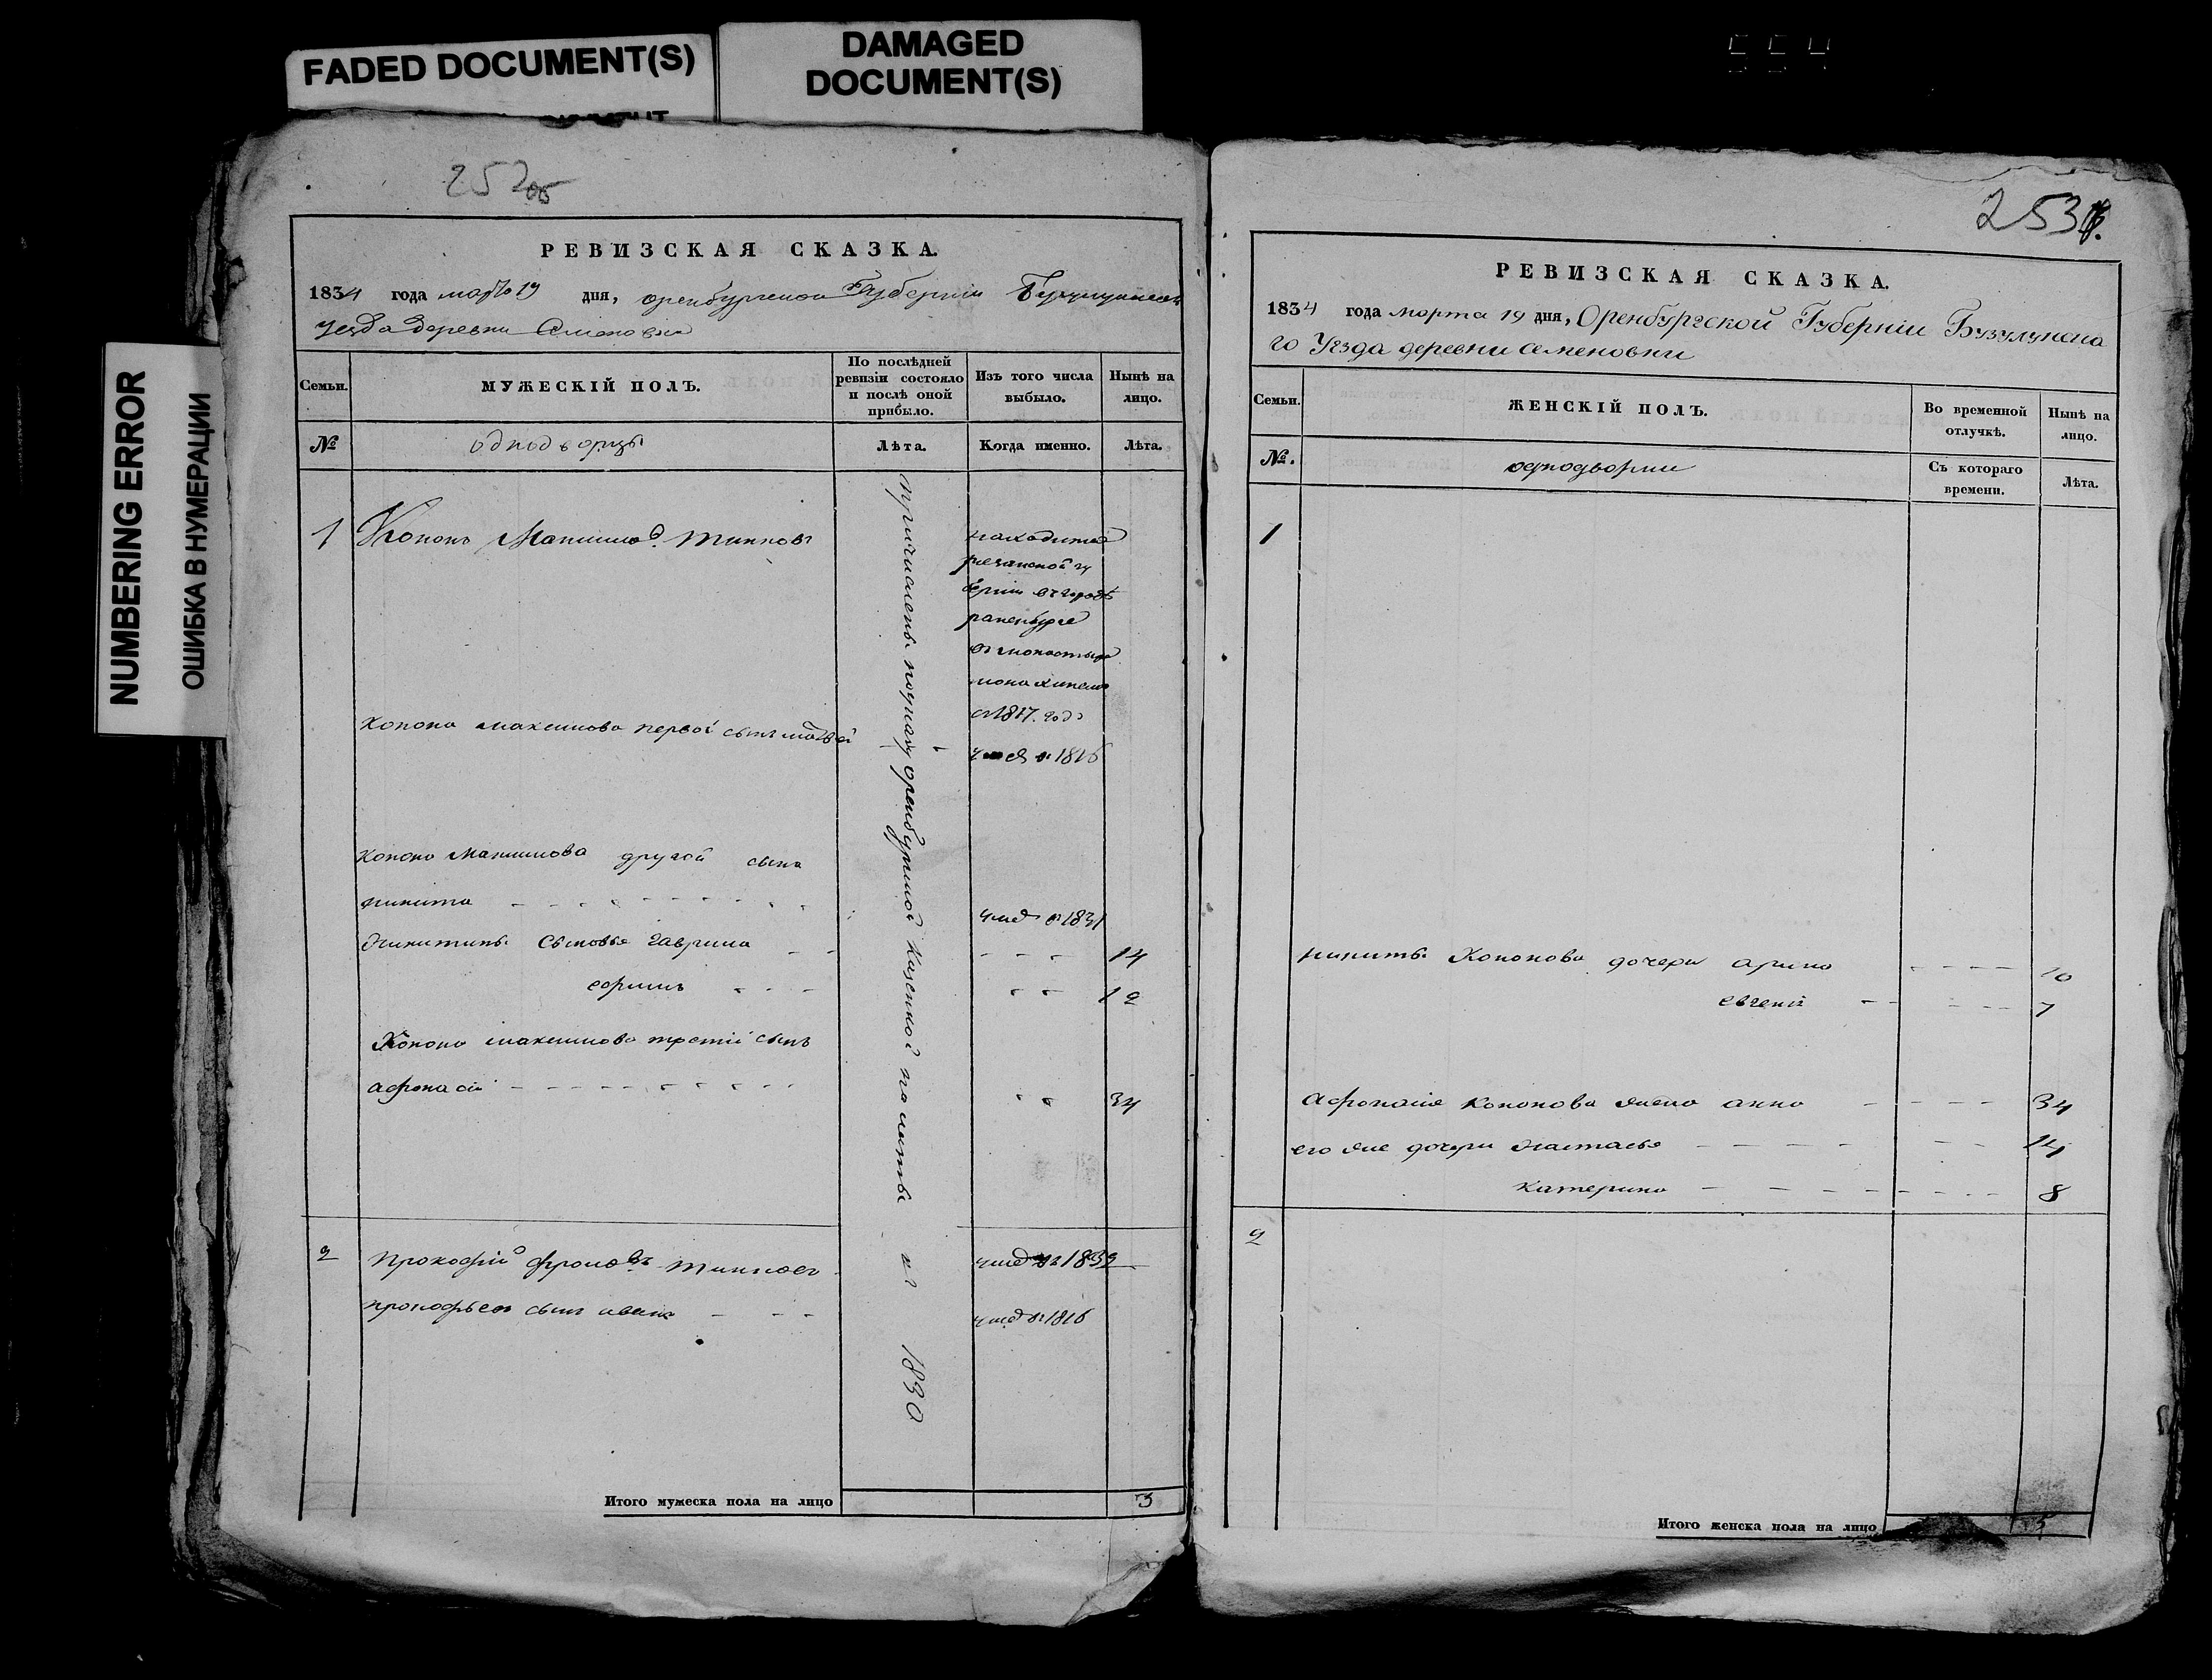 FADED DOCUMENT(S)
DAMAGED
DOCUMENT(S)
554
NUMBERING ERROR
ОШИБКА В НУМЕРАЦИИ
252об
РЕВИЗСКАЯ СКАЗКА.
1834 года марта 19 дня, оренбургской Губернии
уезда деревни Семеновки
Семьи.
МУЖЕСКІЙ ПОЛЪ.
По послѣдней
ревизіи состояло
и послѣ оной
прибыло.
Изъ того числа
выбыло.
Нынѣ на
лицо.
№
однодворцы
Лѣта.
Когда именно.
Лѣта.
1 Кононъ
находится
резанской гу
берніи въ городѣ
раненбурге
монахинемъ
с 1817 годо
конона максимова первой сынъ матвей
1816
конона максимова другой сынъ
никита
умеръ в 1831
никитины сыновья гаврила 14
12
Конона максимова третій сынъ
афонасій 34
оренбургской казенной палаты
1830
2 прокофій
умеръ в 1832
прокофьевъ сынъ иванъ
умеръ в 1816
Итого мужеска пола на лицо 3
253
РЕВИЗСКАЯ СКАЗКА.
1834 года марта 19 дня, Оренбургской Губерніи Бузулукска
го Уезда деревни семеновки
Семьи.
ЖЕНСКІЙ ПОЛЪ.
Во временной
отлучкѣ.
Нынѣ на
лицо.
№.
Съ котораго
времени.
Лѣта.
1
никиты Кононова дочери арина 10
евгенія 7
афонасія кононова жена анна 34
его же дочери настасья 14
катерина 8
2
Итого женска пола на лицо 5